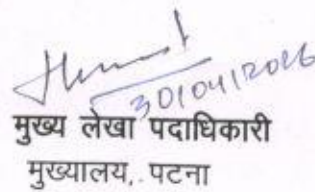 30/04/2026
मुख्य लेखा पदाधिकारी
मुख्यालय, पटना